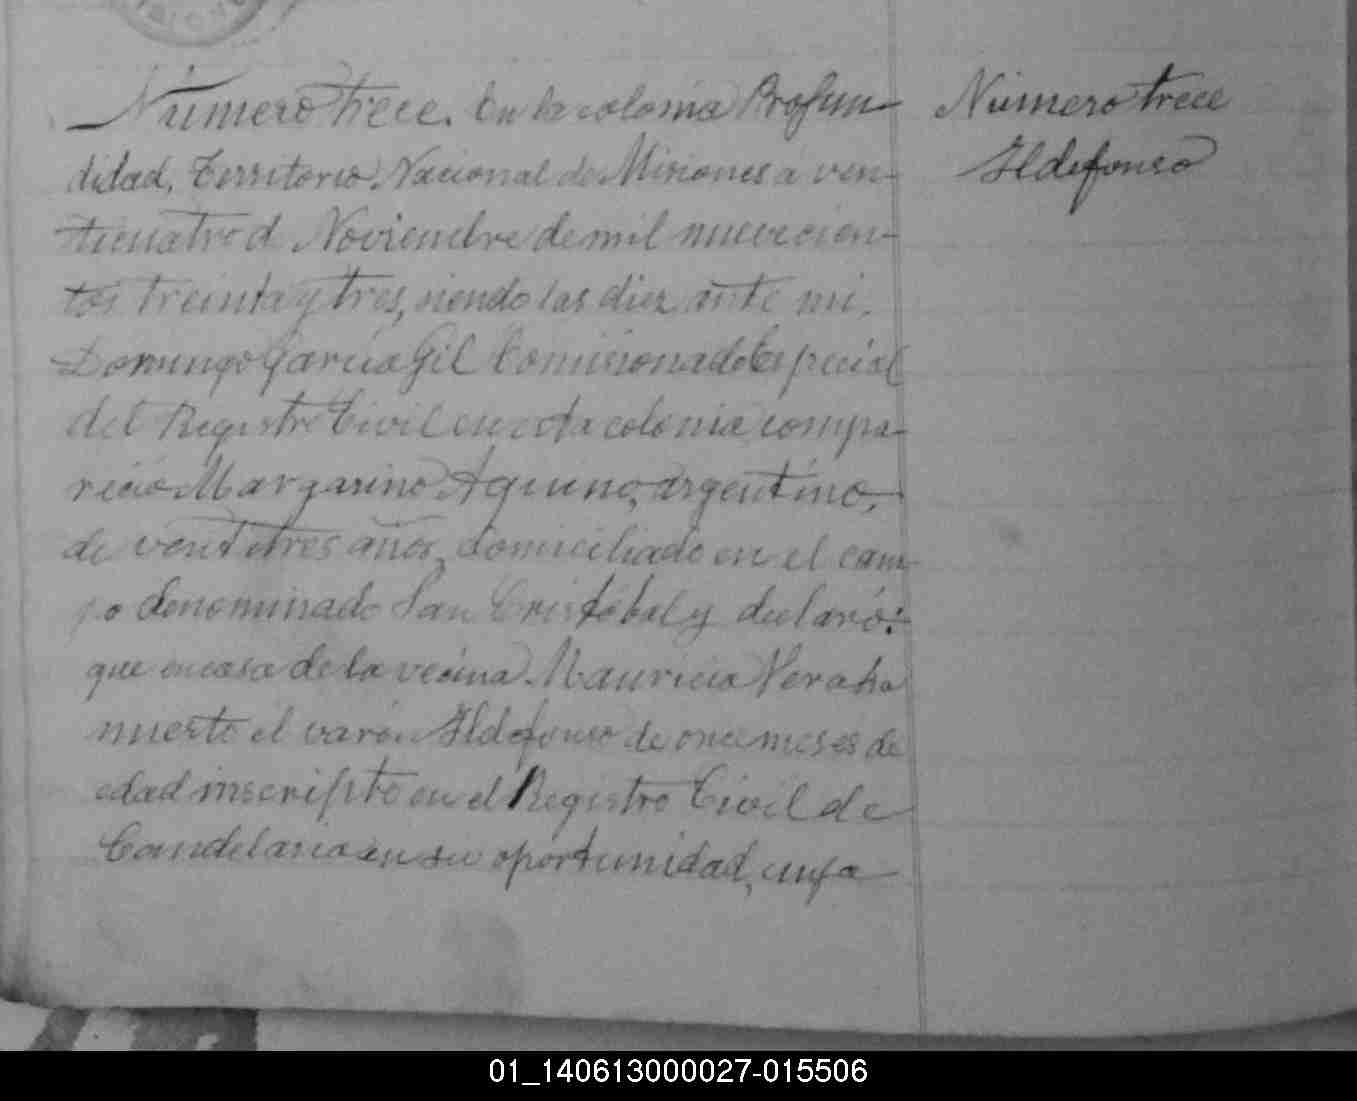 Número trece. En la colonia Profun-
didad, Territorio Nacional de Misiones a vein-
ticuatro d Noviembre de mil nuevecien-
tos treinta y tres, siendo las diez ante mi,
Domingo García Gil Comisionado Especial
del Registro Civil en esta colonia compa-
reció Margarino Aquino, argentino,
de ventitres años, domiciliado en el cam-
po denominado San Cristóbal y declaró:
que en casa de la vecina Mauricia Vera ha
muerto el varón Ildefonso de once meses de
edad inscripto en el Registro Civil de
Candelaria en su oportunidad, cuya
Número trece
Ildefonso
01_140613000027-015506